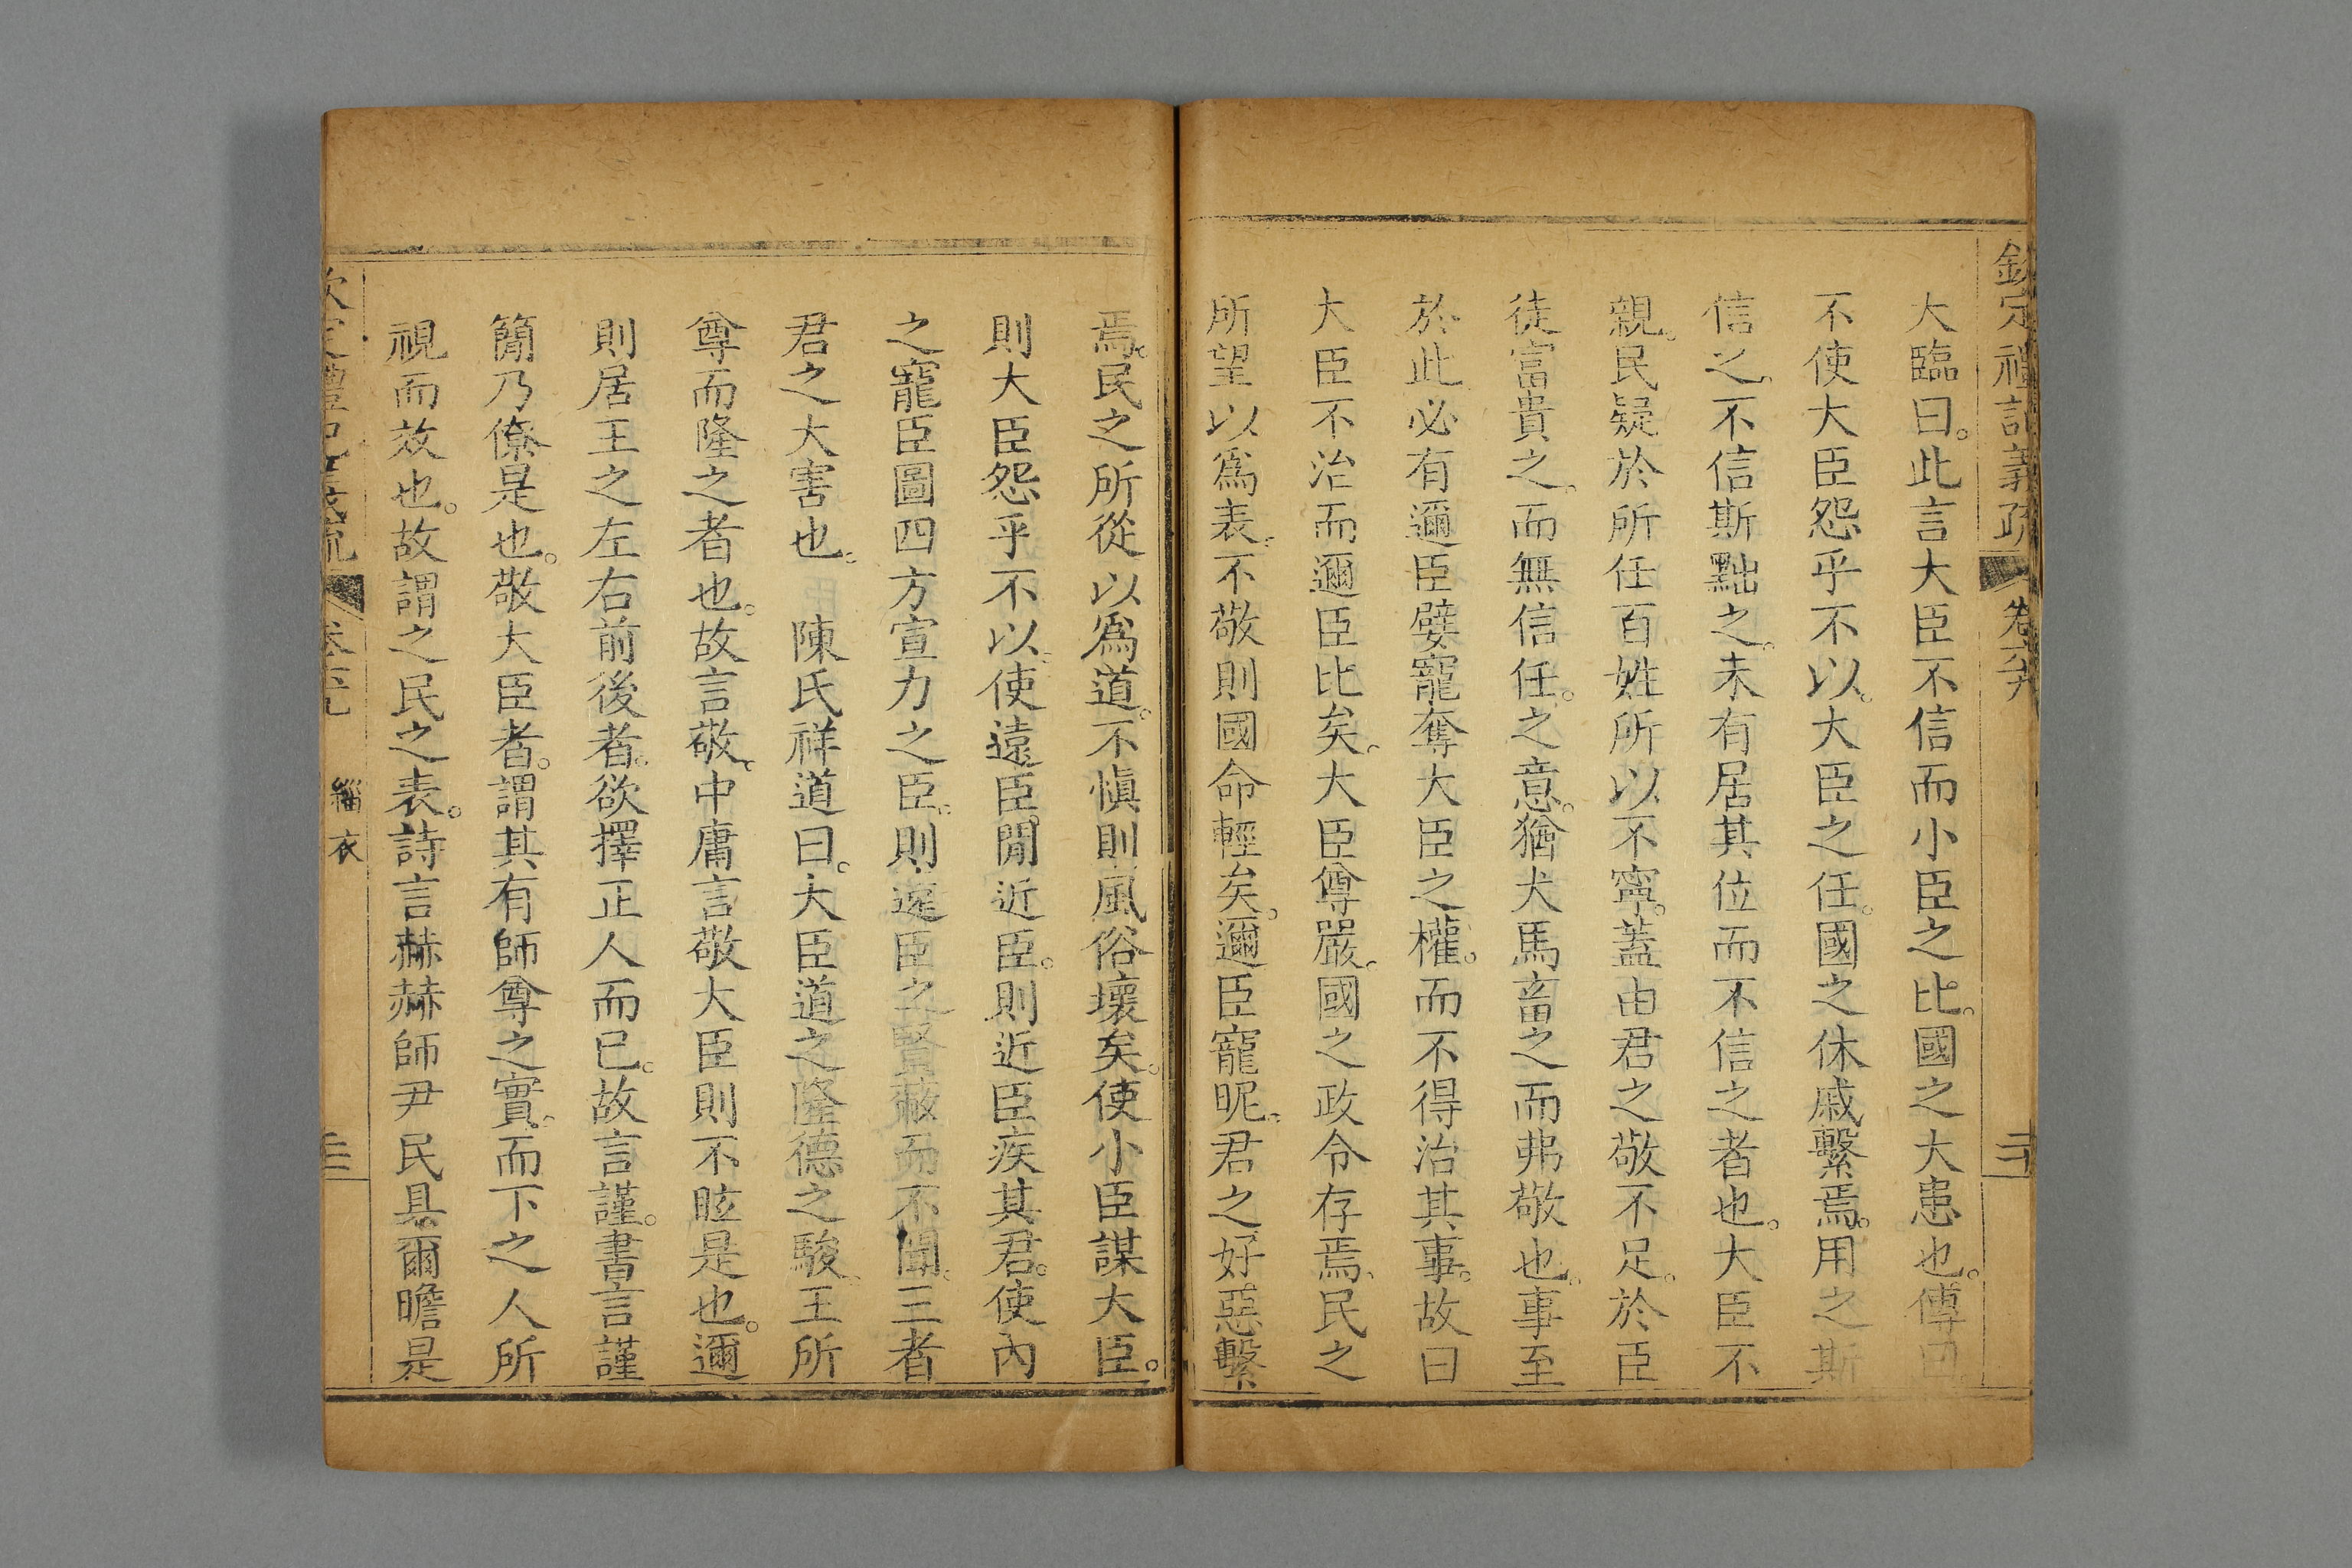 欽定禮記義疏 卷 
大臨曰。此言大臣不信而小臣之比。國之大患也。傳曰
不使大臣怨乎不以。大臣之任。國之休戚繫焉。用之斯
信之。不信斯黜之。未有居其位而不信之者也。大臣不
親。民疑於所任百姓所以不寧。蓋由君之敬不足。於臣
徒富貴之。而無信任。之意。猶犬馬畜之而弗敬也。事至
於此必有邇臣嬖寵奪大臣之權。而不得治其事。故曰
大臣不治而邇臣比矣。大臣尊嚴。國之政令存焉。民之
所望以爲表。不敬則國命輕矣。邇臣寵昵。君之好惡繫
焉。民之所從以爲道。不愼則風俗壞矣。使小臣謀大臣。
則大臣怨乎不以。使遠臣閒近臣。則近臣疾其君。使內
之寵臣圖四方宣力之臣。則遠臣之賢蔽而不聞。三者
君之大害也。 陳氏祥道曰。大臣道之隆德之駿。王所
尊而隆之者也。故言敬。中庸言敬大臣則不眩是也。邇
則居王之左右前後者。欲擇正人而已。故言謹。書言謹
簡乃僚是也。敬大臣者。謂其有師尊之實。而下之人所
視而效也。故謂之民之表。詩言赫赫師尹民具爾瞻是
緇衣